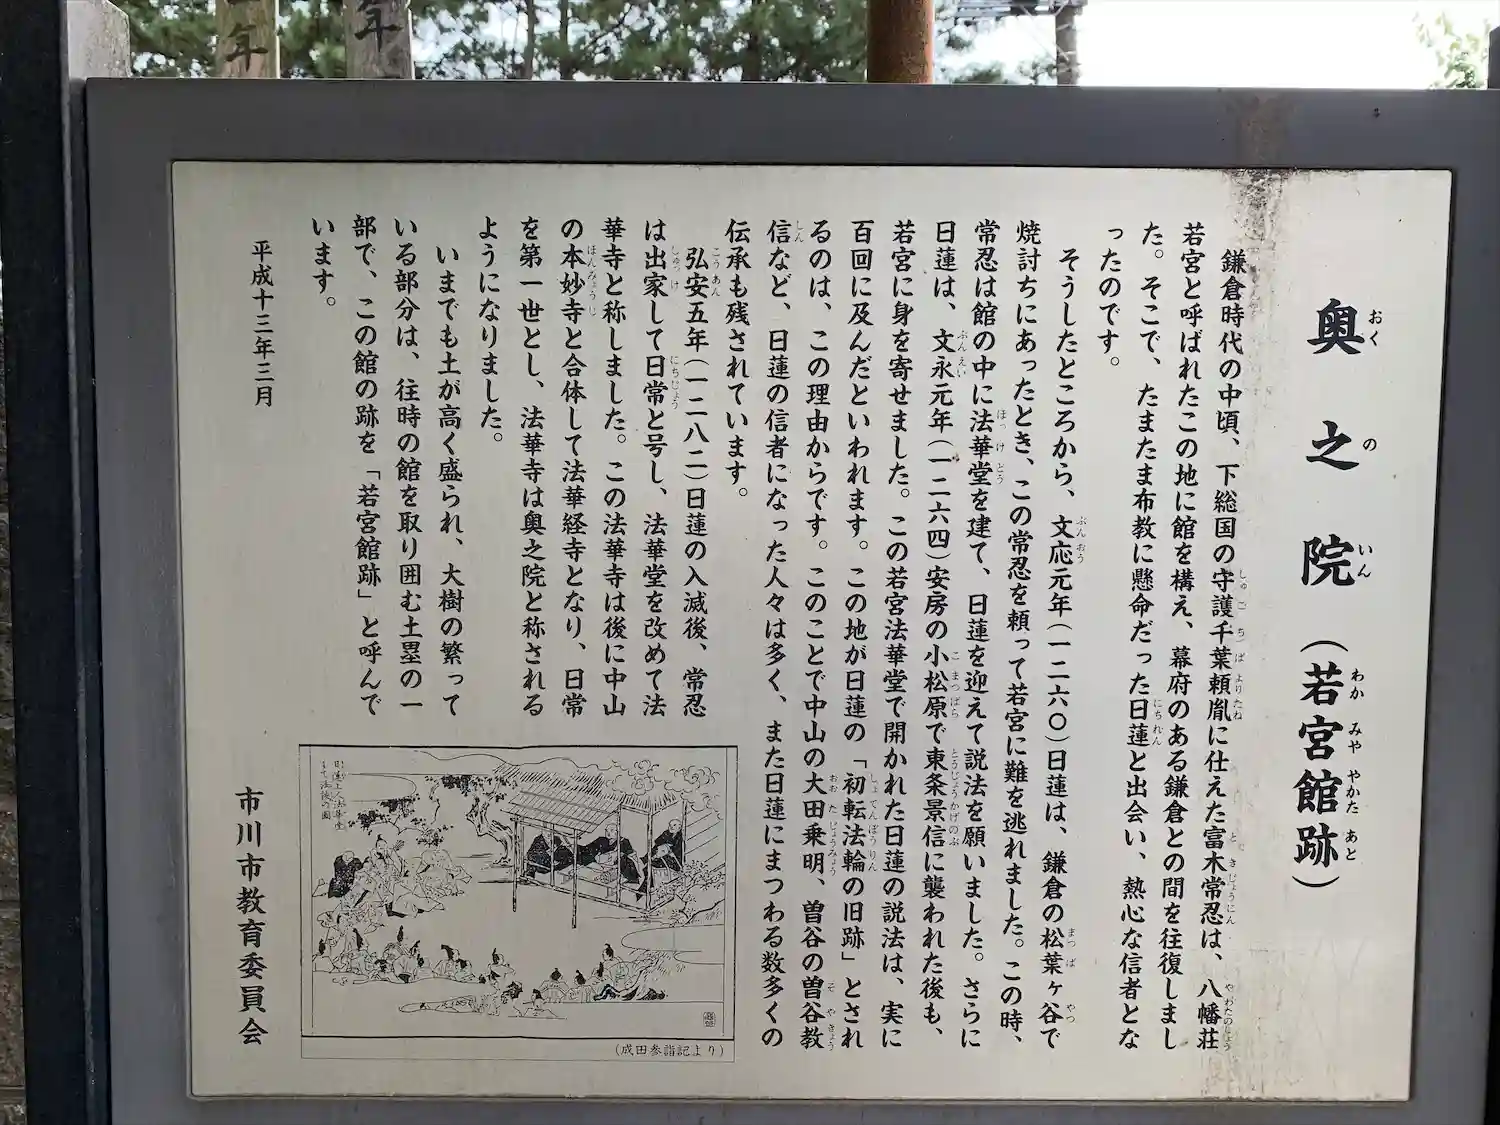 奥之院（若宮館跡）
鎌倉時代の中頃、下総国の守護千葉頼胤に仕えた富木常忍は、八幡荘
若宮と呼ばれたこの地に館を構え、幕府のある鎌倉との間を往復しまし
た。そこで、たまたま布教に懸命だった日蓮と出会い、熱心な信者とな
ったのです。
そうしたところから、文応元年（一二六〇）日蓮は、鎌倉の松葉ヶ谷で
焼討ちにあったとき、この常忍を頼って若宮に難を逃れました。この時、
常忍は館の中に法華堂を建て、日蓮を迎えて説法を願いました。さらに
日蓮は、文永元年（一二六四）安房の小松原で東条景信に襲われた後も、
若宮に身を寄せました。この若宮法華堂で開かれた日蓮の説法は、実に
百回に及んだといわれます。この地が日蓮の「初転法輪の旧跡」とされ
るのは、この理由からです。このことで中山の大田乗明、曽谷の曽谷教
信など、日蓮の信者になった人々は多く、また日蓮にまつわる数多くの
伝承も残されています。
弘安五年（一二八二）日蓮の入滅後、常忍
は出家して日常と号し、法華堂を改めて法
華寺と称しました。この法華寺は後に中山
の本妙寺と合体して法華経寺となり、日常
を第一世とし、法華寺は奥之院と称される
ようになりました。
いまでも土が高く盛られ、大樹の繁って
いる部分は、往時の館を取り囲む土塁の一
部で、この館の跡を「若宮館跡」と呼んで
います。
平成十三年三月
市川市教育委員会
（成田参詣記より）
年
年